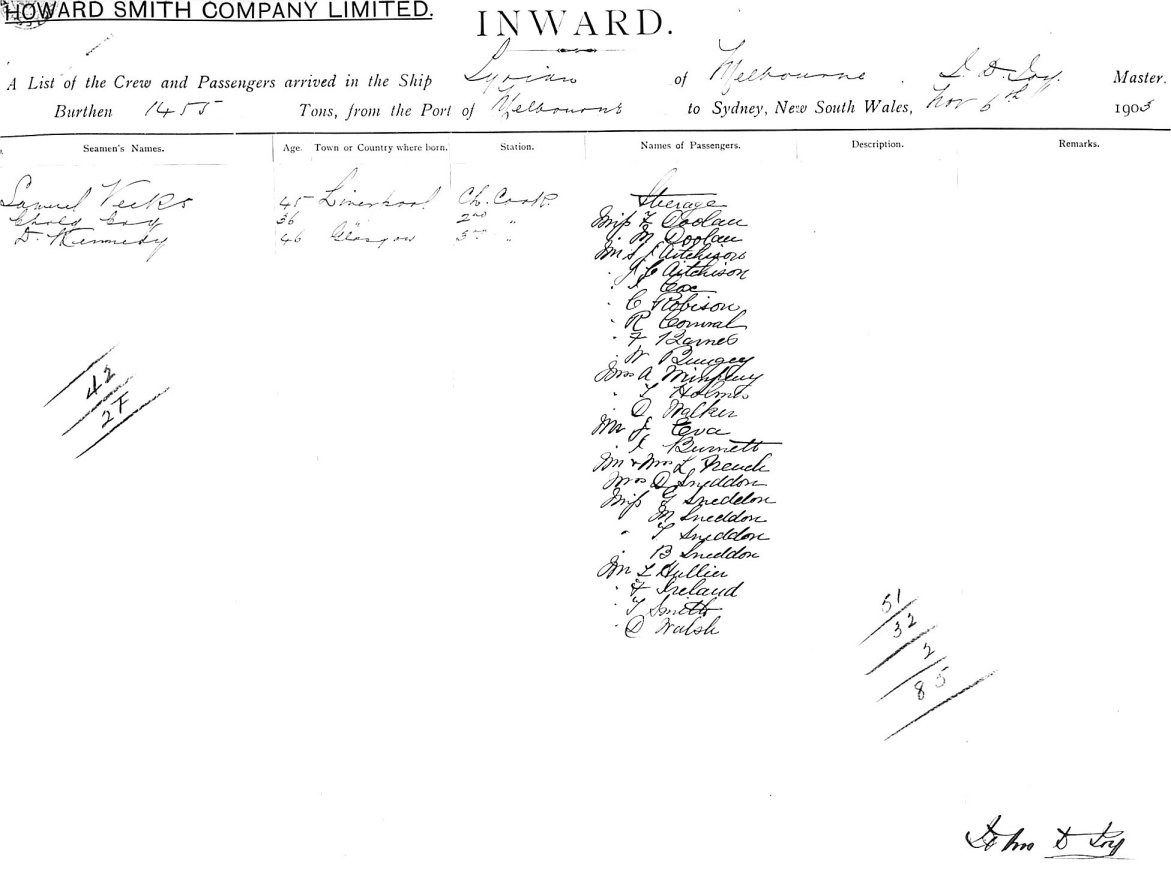 HOWARD SMITH COMPANY LIMITED.
INWARD.
A List of the Crew and Passengers arrived in the Ship Syrian of Melbourne. J. D. Joy. Master.
Burthen 1455 Tons, from the Port of Melbourne to Sydney, New South Wales, Nov 6th 1903
Seamen's Names. Age. Town or Country where born. Station. Names of Passengers. Description. Remarks.
Samuel Veeks 45 Liverpool Ch. Cook
36 " 2nd "
D. Kennedy 46 Glasgow 3rd "
Steerage
Miss F Doolan
" M Doolan
Mr J Aitchison
" J C Aitchison
" Cox
" C Robison
" R
" F Barnes
" W Bungey
Mrs A
" T Holmes
" D Walker
Mr J Eva
" Burnett
Mr & Mrs L French
Mrs D Sneddon
Miss G Sneddon
M Sneddon
" T Sneddon
" B Sneddon
Mr L Hullier
" F Ireland
" T Smith
" D Walsh
42
27
51
32
2
85
John D Joy